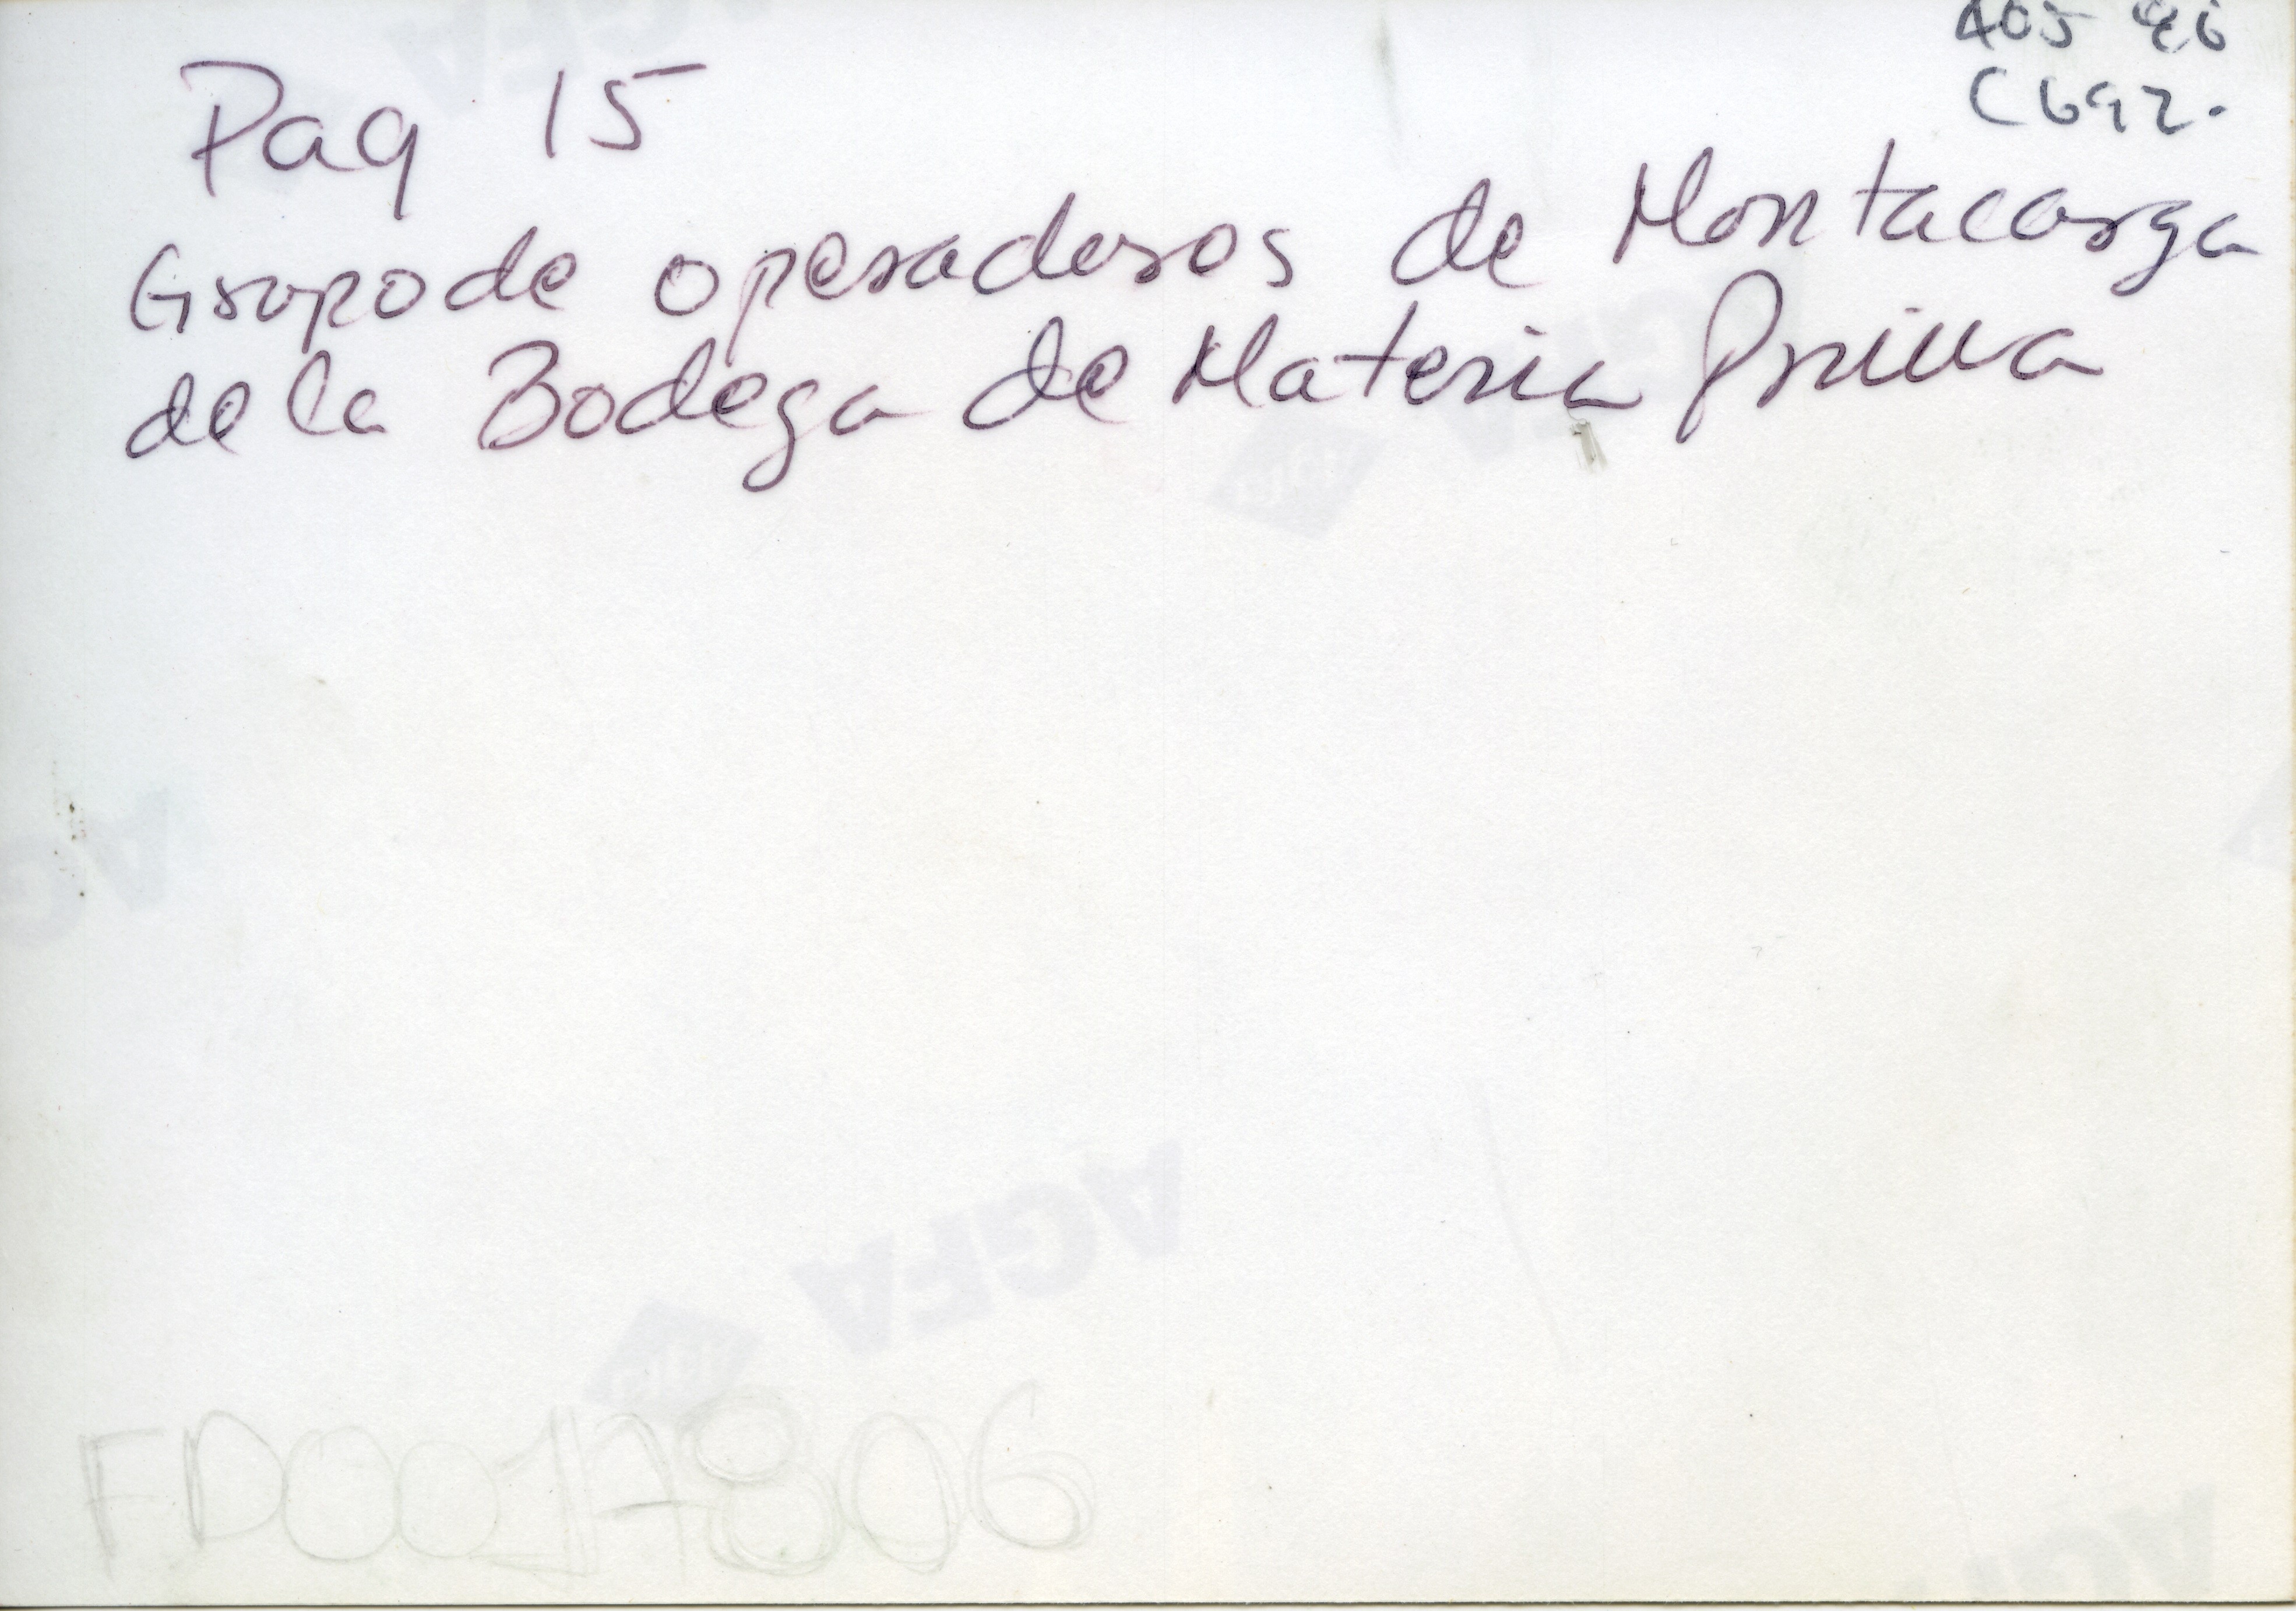 C692.
Pag 15
Grupo de operadores de Montacarga
de la Bodega de Materia Prima
AGFA
FD0017806